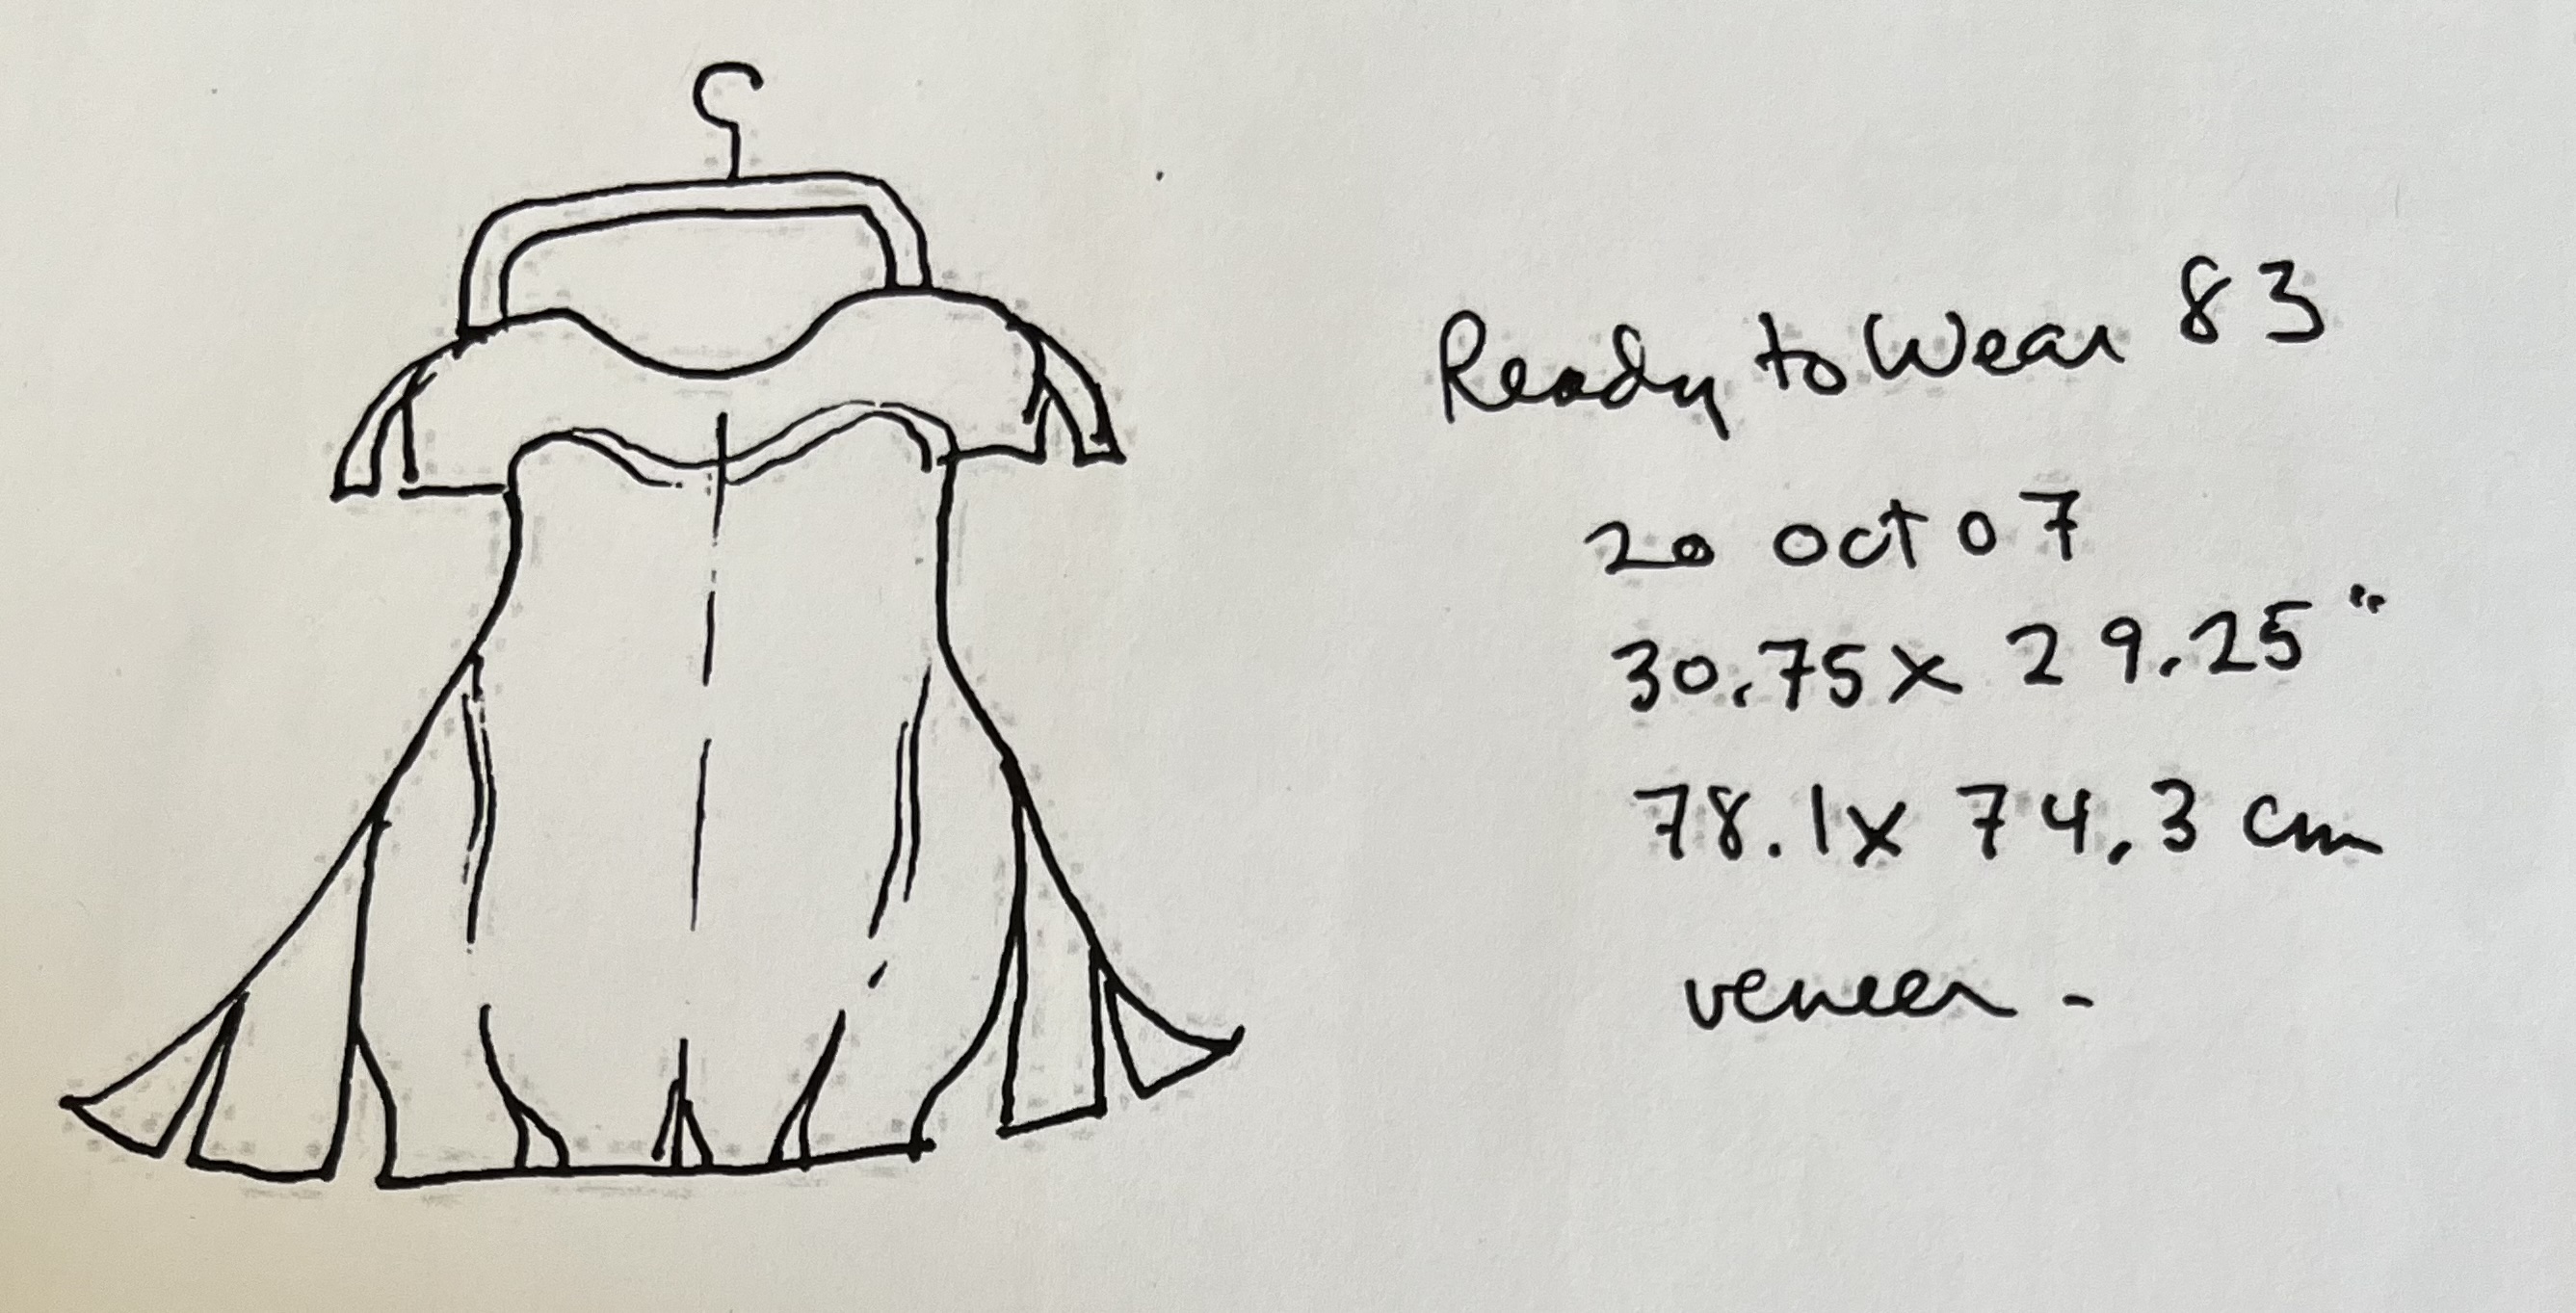 Ready to Wear 83
20 oct 07
30.75 x 29.25"
78.1 x 74.3 cm
veneer -